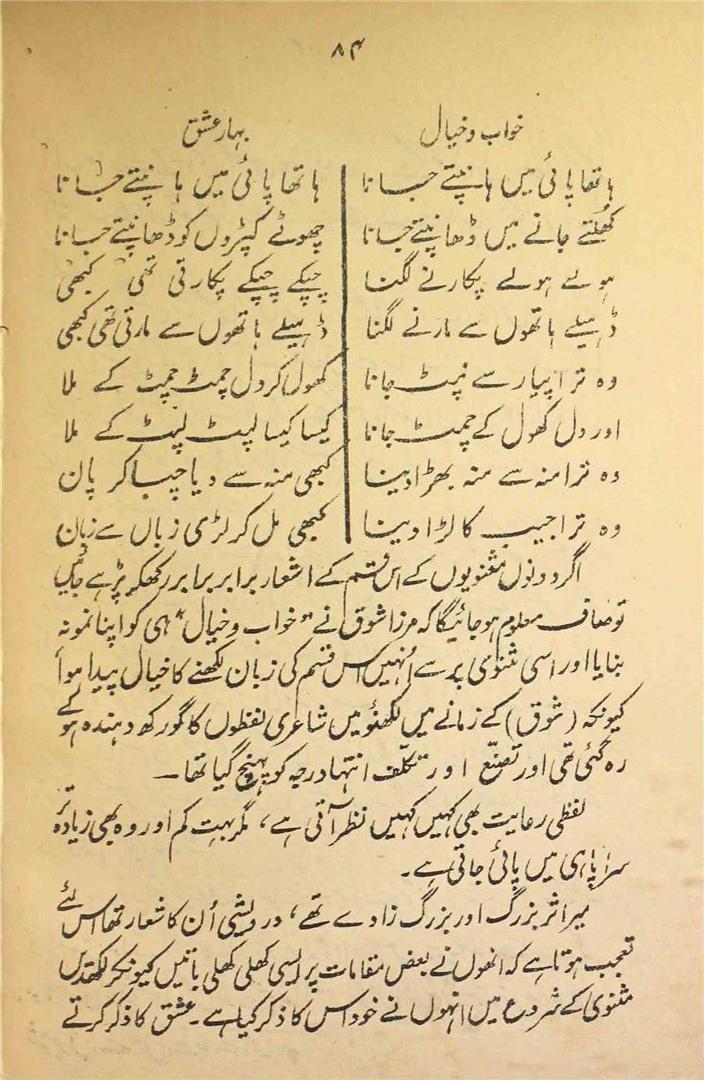 ۸۴
خواب و خیال
ہاتھا پائی میں ہانپتے جانا
کھُلتے جانے میں ڈھانپتے جانا
ہولے ہولے پکارنے لگنا
ڈہیلے ہاتھوں سے مارنے لگنا
وہ ترا پیار سے لپٹ جانا
اور دل کھول کے چمٹ جانا
وہ ترا منہ سے منہ بھڑا دینا
وہ ترا جیب کا لڑا دینا
بہار عشق
ہاتھا پائی میں ہانپتے جانا
چھوٹے کپڑوں کو ڈھانپتے جانا
چپکے چپکے پکارتی تھی کبھی
ڈہیلے ہاتھوں سے مارتی تھی کبھی
کھول کر دل چمٹ چمٹ کے ملا
کیسا کیسا لپٹ لپٹ کے ملا
کبھی منہ سے دیا چبا کر پان
کبھی مل کر لڑی زباں سے زبان
اگر دونوں مثنویوں کے اس قسم کے اشعار برابر برابر رکھکر پڑہے جائیں
تو صاف معلوم ہو جائیگا کہ مرزا شوق نے "خواب و خیال" ہی کو اپنا نمونہ
بنایا اور اسی مثنوی پر سے اُنہیں اس قسم کی زبان لکھنے کا خیال پیدا ہوا
کیونکہ (شوق) کے زمانے میں لکھنؤ میں شاعری لفظوں کا گورکھ دہندہ ہوکے
رہ گئی تھی اور تصنّع اور تکلّف انتہا درجہ کو پہنچ گیا تھا۔
لفظی رعایت بھی کہیں کہیں نظر آتی ہے، مگر بہت کم اور وہ بھی زیادہ تر
سراپا ہی میں پائی جاتی ہے۔
میر اثر بزرگ اور بزرگ زادے تھے، درویشی اُن کا شعار تھا اس لئے
تعجب ہوتا ہے کہ انھوں نے بعض مقامات پر ایسی کھلی کھلی باتیں کیونکر لکھدیں
مثنوی کے شروع میں انہوں نے خود اس کا ذکر کیا ہے۔ عشق کا ذکر کرتے